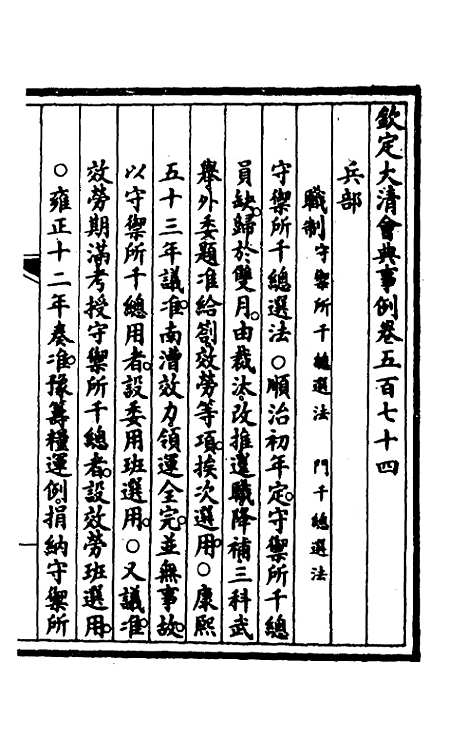 欽定大清會典事例卷五百七十四
兵部
職制 守禦所千總選法 門千總選法
守禦所千總選法○順治初年定。守禦所千總
員缺。歸於雙月。由裁汰。改推選職。降補。三科武
舉。外委題准給劄效勞等項。挨次選用。○康熙
五十三年議准。南漕效力。領運全完。並無事故。
以守禦所千總用者。設委用班選用。○又議准。
效勞期滿。考授守禦所千總者。設效勞班選用。
○雍正十二年奏准。豫籌糧運例。捐納守禦所